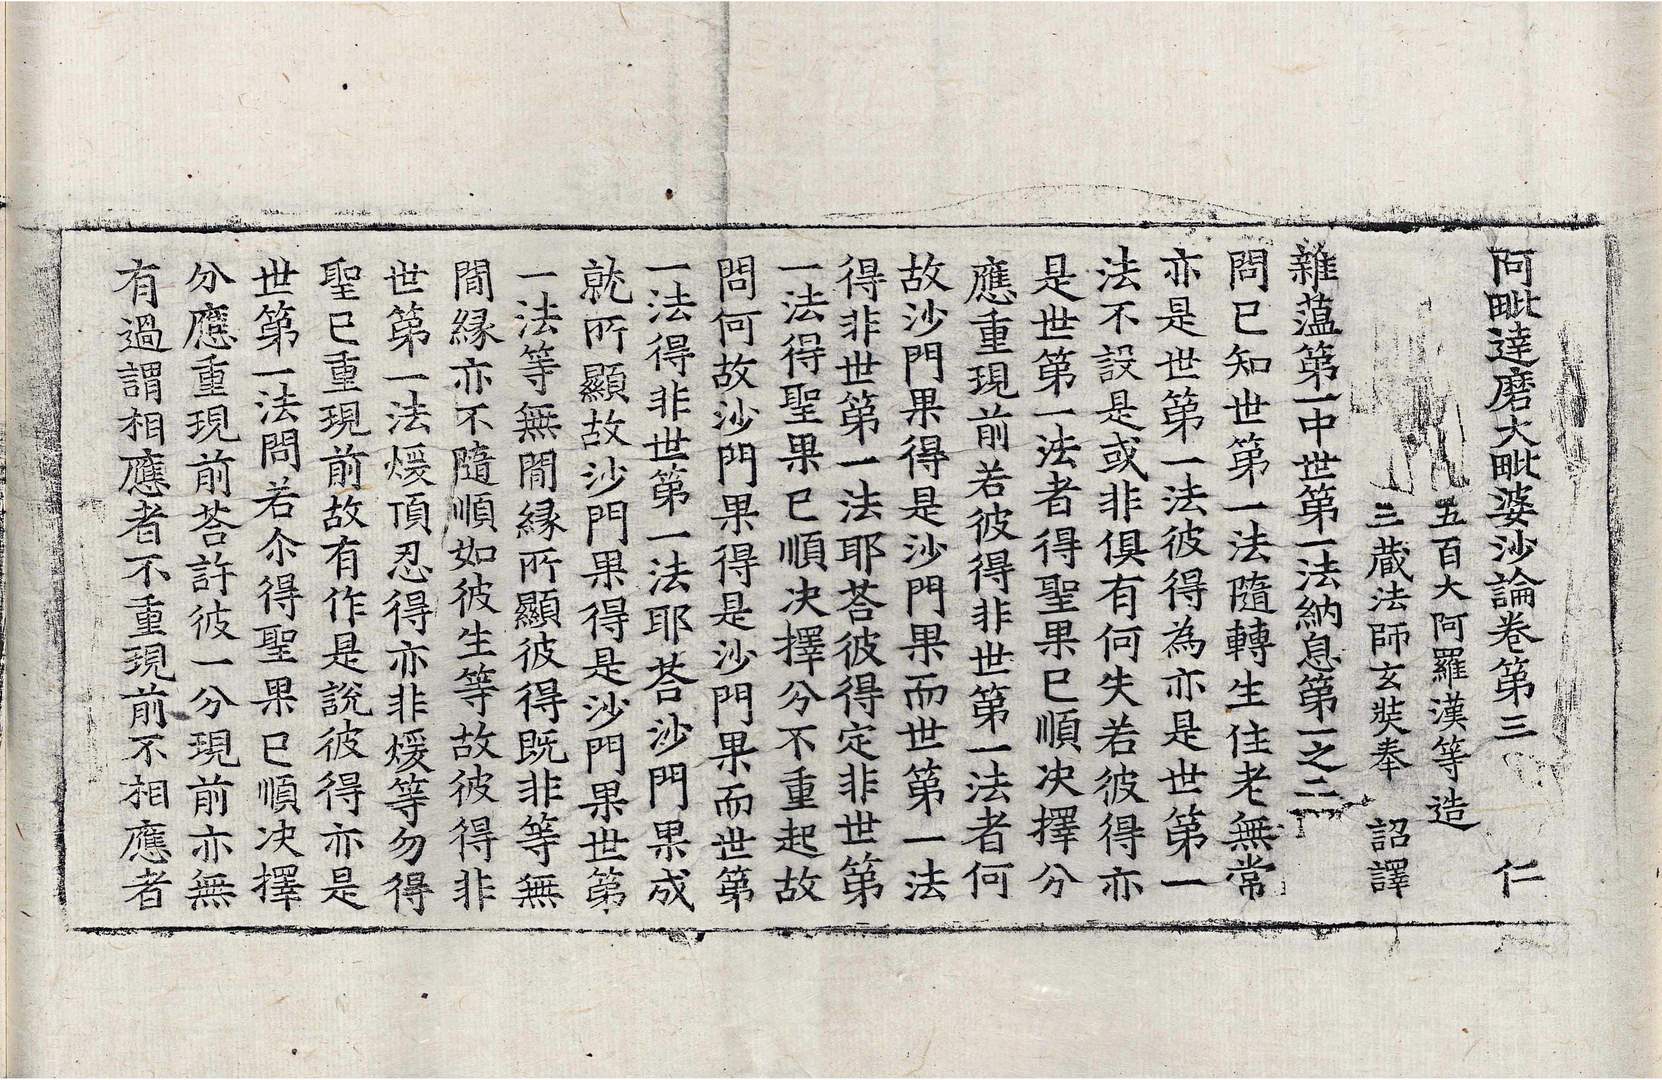 阿毗達磨大毗婆沙論卷第三 仁
五百大阿羅漢等造
三藏法師玄奘奉 詔譯
雜藴第一中世第一法納息第一之二
問已知世第一法隨轉生住老無常
亦是世第一法彼得為亦是世第一
法不設是或非俱有何失若彼得亦
是世第一法者得聖果已順决擇分
應重現前若彼得非世第一法者何
故沙門果得是沙門果而世第一法
得非世第一法耶荅彼得定非世第
一法得聖果已順决擇分不重起故
問何故沙門果得是沙門果而世第
一法得非世第一法耶荅沙門果成
就所顯故沙門果得是沙門果世第
一法等無間緣所顯彼得既非等無
間緣亦不隨順如彼生等故彼得非
世第一法煖頂忍得亦非煖等勿得
聖已重現前故有作是說彼得亦是
世第一法問若尒得聖果已順决擇
分應重現前荅許彼一分現前亦無
有過謂相應者不重現前不相應者